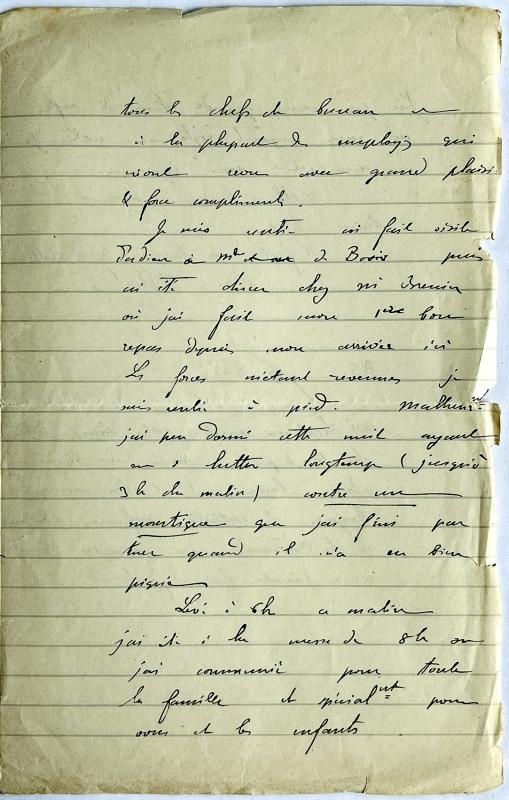 tous les chefs de bureau et
à la plupart des employés qui
m'ont revu avec grand plaisir
& force compliments.
Je suis rentré ai fait visite
d'adieu à Mr de puis
ai été diner chez
où j'ai fait mon 1er bon
repas depuis mon arrivée ici
Les forces m'étant revenues je
suis rentré à pied. Malheurt
j'ai peu dormi cette nuit ayant
eu à lutter longtemps (jusqu'à
3h du matin) contre un
moustique que j'ai fini par
tuer quand il m'a eu bien
piqué
Levé à 6h ce matin
j'ai été à la messe de 8h où
j'ai communié pour toute
la famille et spécialmt pour
vous et les enfants.